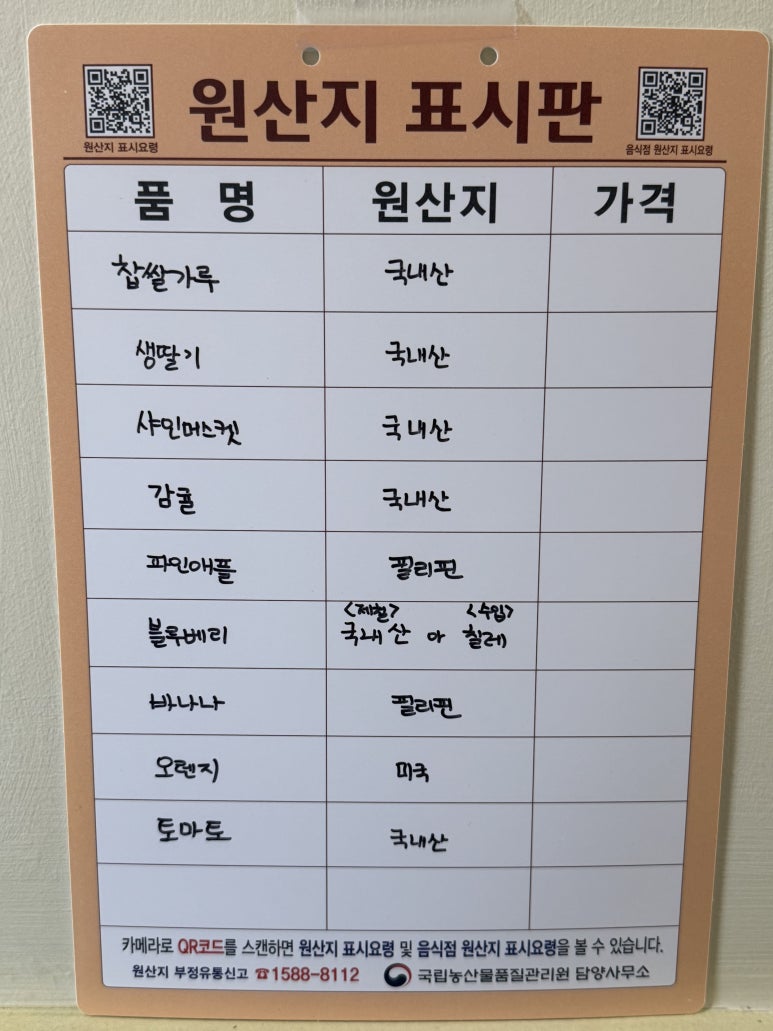 원산지 표시판
원산지 표시요령
음식점 원산지 표시요령
품 명 원산지 가격
찹쌀가루 국내산
생딸기 국내산
샤인머스켓 국내산
감귤 국내산
파인애플 필리핀
<제철> <수입>
블루베리 국내산 아 칠레
바나나 필리핀
오렌지 미국
토마토 국내산
카메라로 QR코드를 스캔하면 원산지 표시요령 및 음식점 원산지 표시요령을 볼 수 있습니다.
원산지 부정유통신고 ☎1588-8112 국립농산물품질관리원 담양사무소